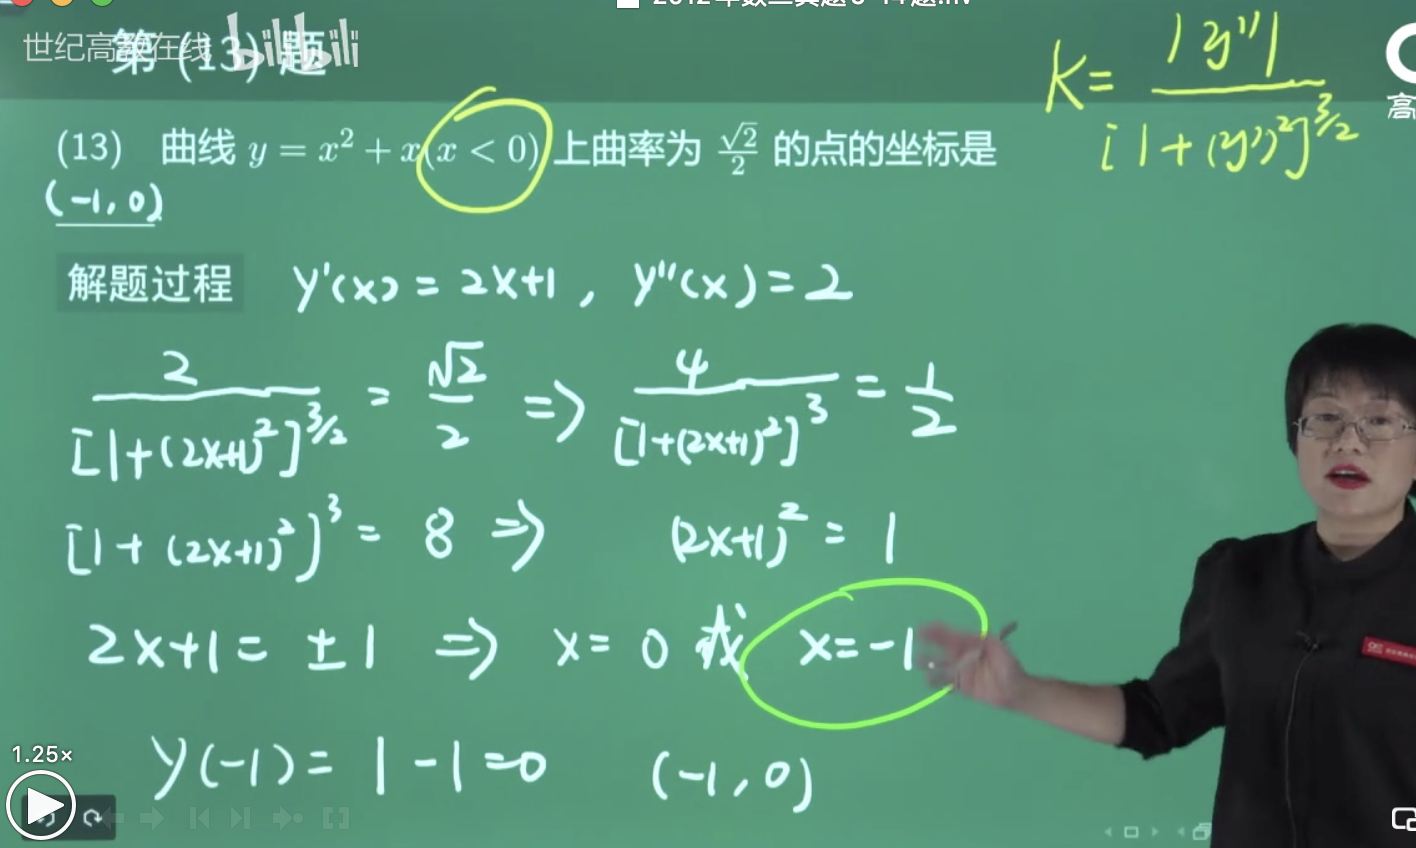 世纪高教在线 bilibili
第 (13) 题
K= |y''| / [1+(y')²]^3/2
高
(13) 曲线 y = x² + x(x < 0) 上曲率为 √2/2 的点的坐标是
(-1,0)
解题过程 y'(x) = 2x+1 , y''(x) = 2
2 / [1+(2x+1)²]^3/2 = √2/2 => 4 / [1+(2x+1)²]³ = 1/2
[1+(2x+1)²]³ = 8 => (2x+1)² = 1
2x+1 = ±1 => x = 0 或 x = -1
y(-1) = 1-1=0 (-1,0)
1.25×